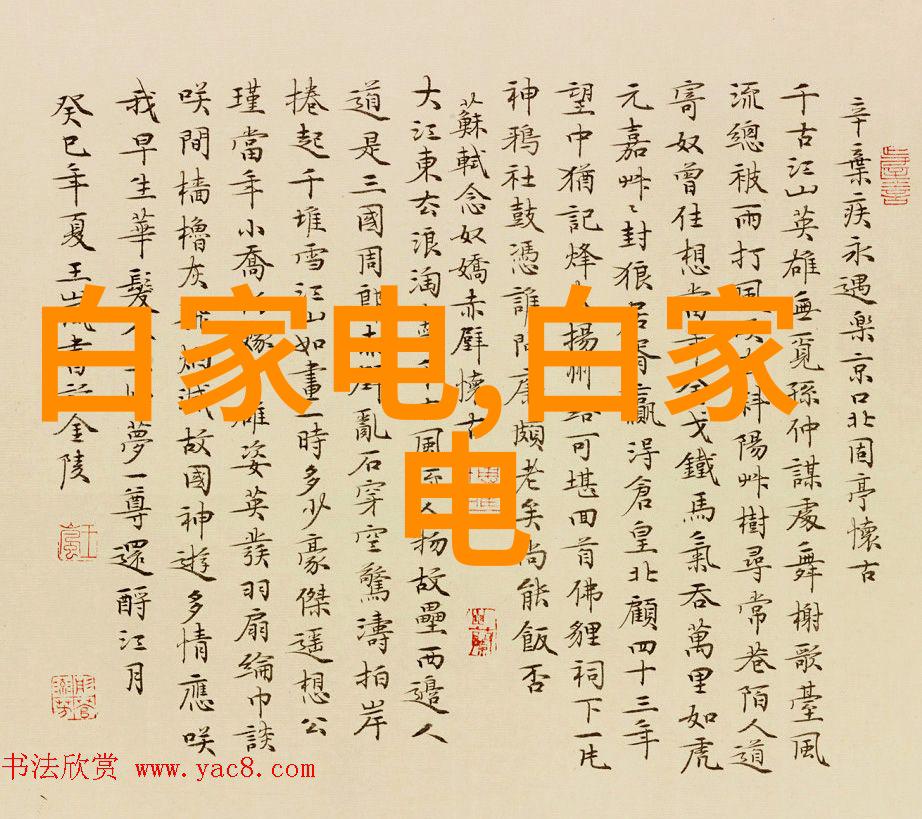 辛棄疾永遇樂京口北固亭懷古
千古江山英雄無覓孫仲謀處舞榭歌臺風
流總被雨打風斜陽艸樹尋常巷陌人道
寄奴曾住想當年金戈鐵馬氣吞萬里如虎
元嘉艸〻封狼居胥贏得倉皇北顧四十三年
望中猶記烽火揚州路可堪回首佛貍祠下一片
神鴉社鼓憑誰問廉頗老矣尚能飯否
蘇軾念奴嬌赤壁懷古
大江東去浪淘盡千古風流人物故壘西邊人
道是三國周郎赤壁亂石穿空驚濤拍岸
捲起千堆雪江山如畫一時多少豪傑遙想公
瑾當年小喬初嫁雄姿英發羽扇綸巾談
咲間檣櫓灰飛煙滅故國神遊多情應咲
我早生華髮人夢一尊還酹江月
癸巳年夏王書金陵
白家电,白家
电
书法欣赏 www.yac8.com